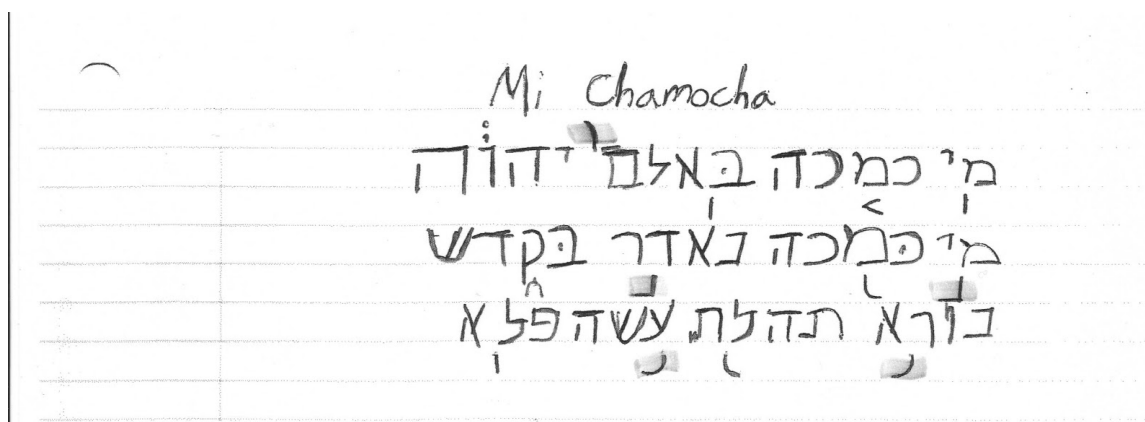 Mi Chamocha
מי כמכה בּאלם יהוֹה
מי כּמכה נאדר בּקדש
נורא תהלת עשה פּלא